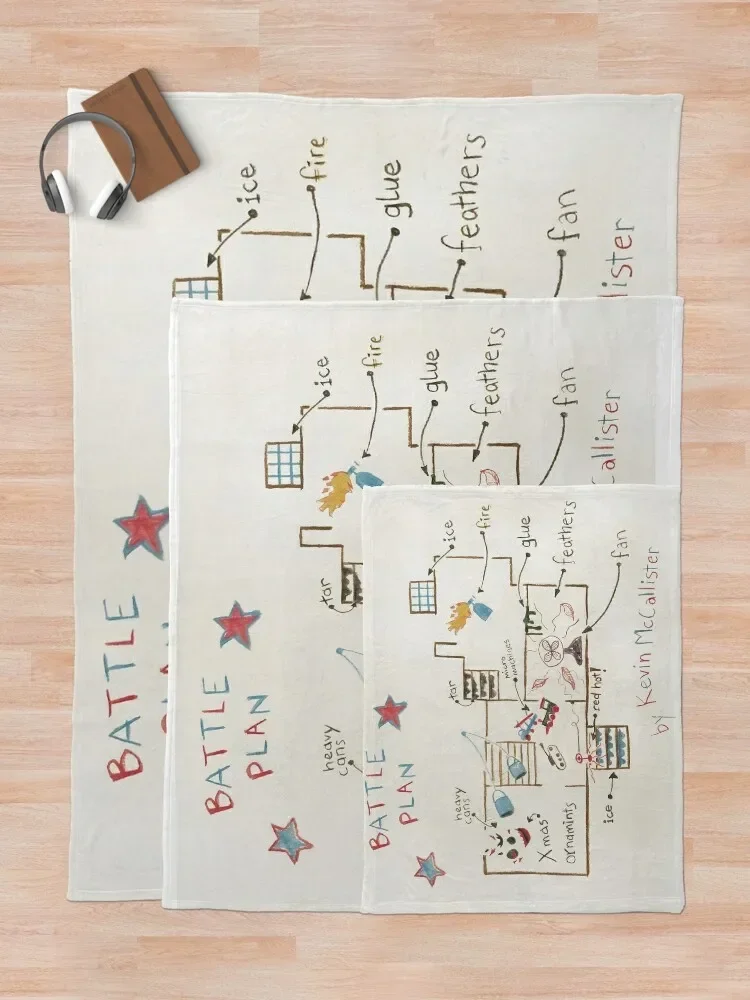 BATTLE
ice
fire
glue
feathers
fan
lister
BATTLE
PLAN
ice
fire
glue
feathers
fan
tar
heavy
cans
Callister
BATTLE
PLAN
ice
fire
glue
feathers
fan
tar
micro
machines
red hot!
heavy
cans
Xmas
ornamints
ice
by Kevin McCallister